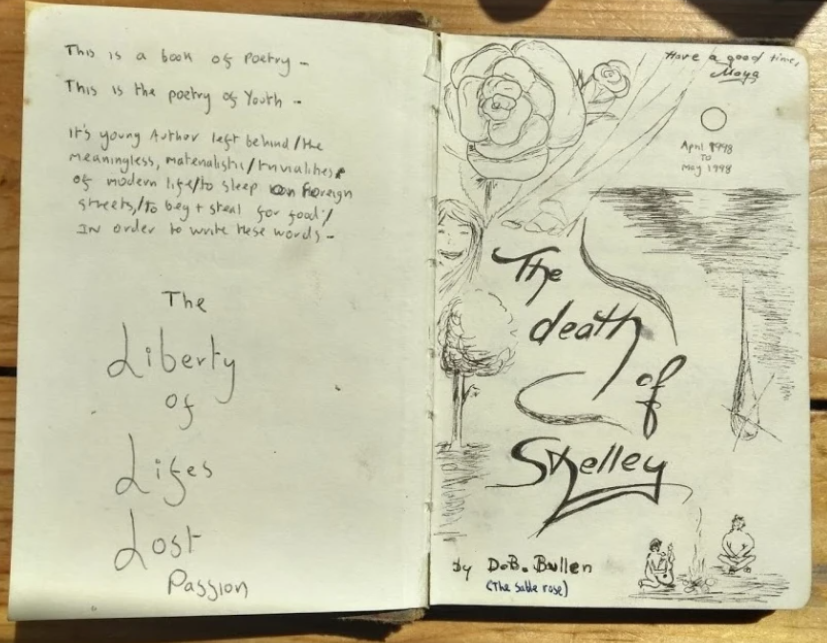 This is a book of Poetry -
This is the poetry of Youth -
It's young Author left behind/the
meaningless, materialistic/trivialities
of modern life/to sleep on foreign
streets,/to beg + steal for food/
IN order to write these words -
The
Liberty
of
Lifes
Lost
Passion
Have a good time,
Maya
April 1998
TO
May 1998
The
death
of
Shelley
by D.B. Bullen
(The sable rose)